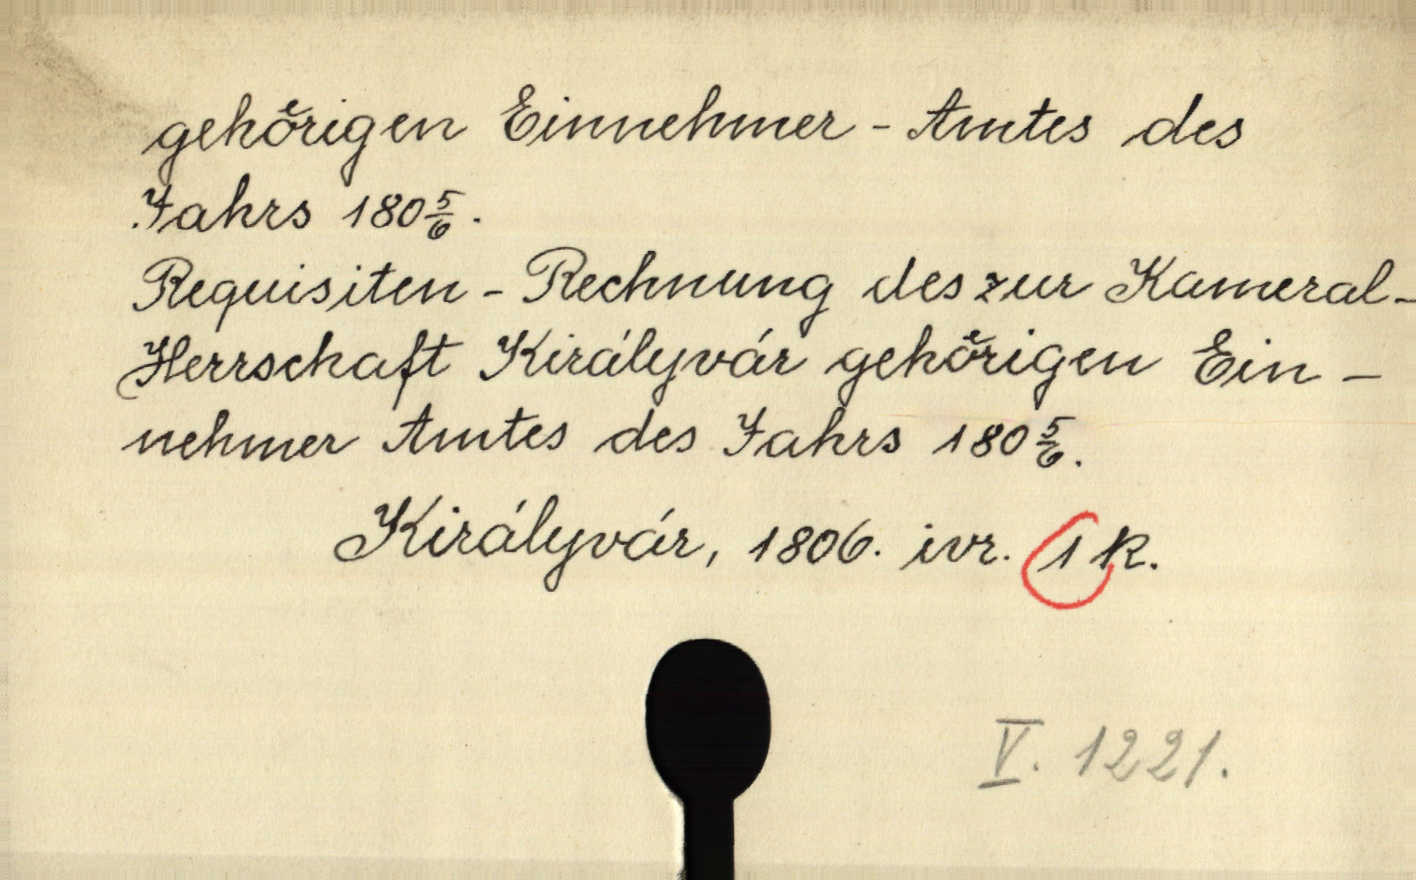 gehörigen Einnehmer - Amtes des
Jahrs 180 5/6.
Requisiten - Rechnung des zur Kameral-
Herrschaft Királyvár gehörigen Ein -
nehmer Amtes des Jahrs 180 5/6.
Királyvár, 1806. ivr. 1 K.
V. 1221.